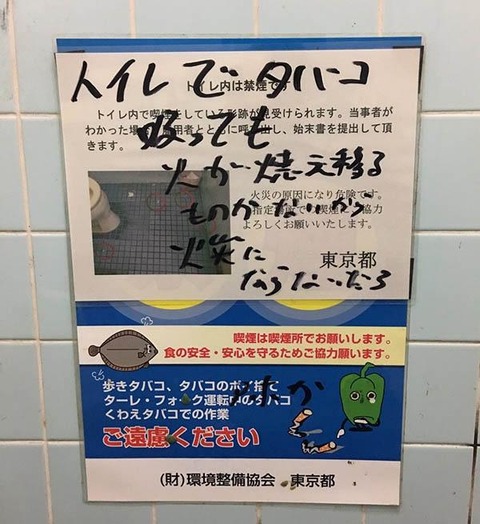 トイレ内は禁煙です
トイレ内で喫煙をしている形跡が見受けられます。当事者が
わかった場合、雇用者とともに呼び出し、始末書を提出して頂
きます。
火災の原因になり危険です。
指定場所での喫煙にご協力
よろしくお願いいたします。
東京都
トイレで タバコ
吸っても
火が 燃え移る
ものが ないから
火災に
ならないだろ
喫煙は喫煙所でお願いします。
食の安全・安心を守るためご協力願います。
歩きタバコ、タバコのポイ捨て
ターレ・フォーク運転中のタバコ
くわえタバコでの作業
ご遠慮ください
(財)環境整備協会 東京都